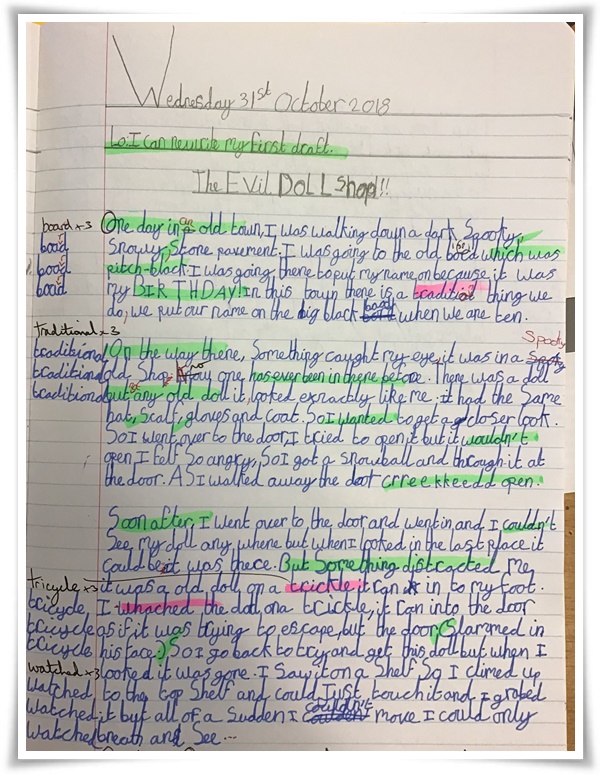 Wednesday 31st October 2018
Lo: I can rewrite my first draft.
The EVIL DOLL Shop!!
board x3 One day in an old town, I was walking down a dark, Spooky,
boad Snowy, Stone pavement. I was going to the old boed which was
boad pitch-black I was going there to put my name on because it was
boad my BIRTHDAY! In this town there is a traditiol thing we
do, we put our name on the big black board when we are ten.
traditional x3 Spooky
traditional On the way there, Something caught my eye, it was in a
traditional old Shop no one has ever been in there before. There was a doll
traditional but any old doll it looked exnactly like me. it had the Same
hat, Scalf, gloves and Coat. So I wanted to get a closer look.
So I went over to the door I tried to open it but it wouldn't
open I felt So angry, So I got a Snowball and through it at
the door. AS I walked away the door crreekkeedd open.
Soon after, I went over to the door and went in, and I couldn't
See my doll any where but when I looked in the last place it
Could be it was there. But Something distracted me,
tricycle x3 it was a old doll on a trickle, it ran in to my foot.
tricycle, I whached the doll on a trickle, it ran into the door
tricycle as if it was trying to escape, but the door Slammed in
tricycle his face. So I go back to try and get this doll but when I
watched x3 looked it was gone. I Saw it on a Shelf So I climed up
watched, to the top Shelf and could Just touch it and I grabed
watched, it but all of a Sudden I couldn't move I could only
watched breath and See...